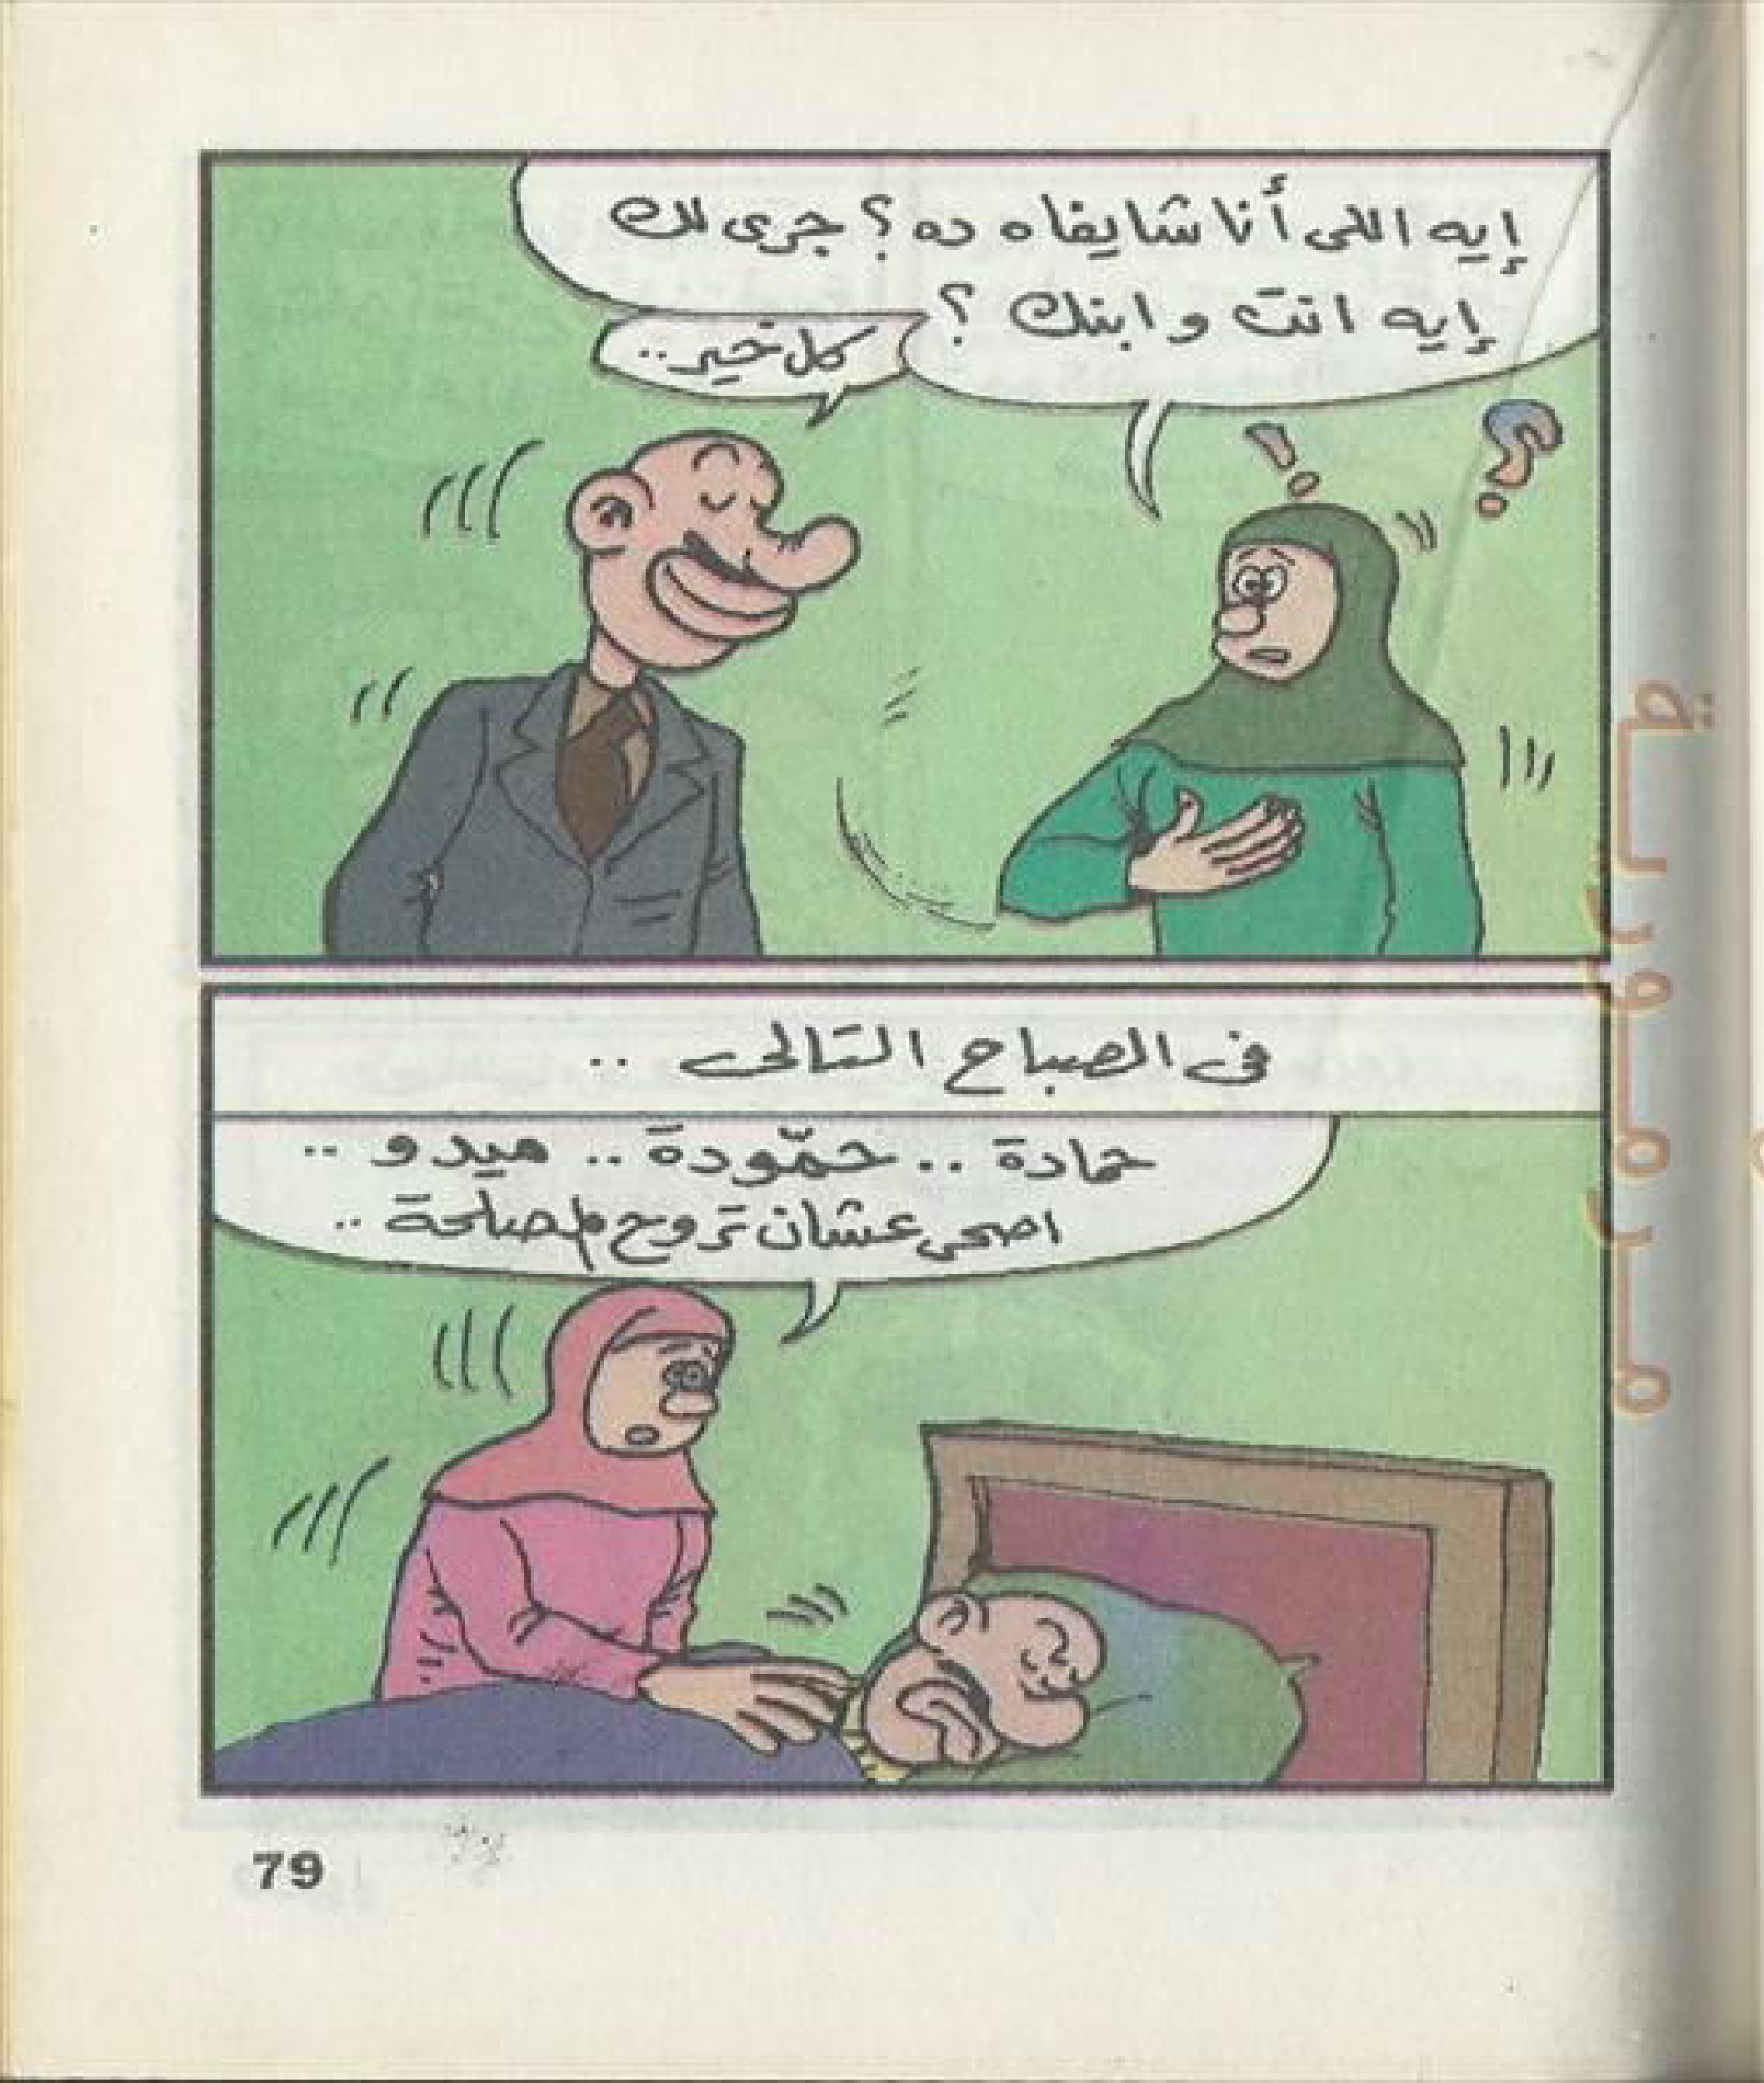 إيه اللى أنا شايفاه ده؟ جرى لك
إيه انت وابنك ؟
كل خير..
فى الصباح التالى ..
حمادة .. حمّودة .. ميدو ..
اصحى عشان تروح المصلحة ..
مرمورية
79